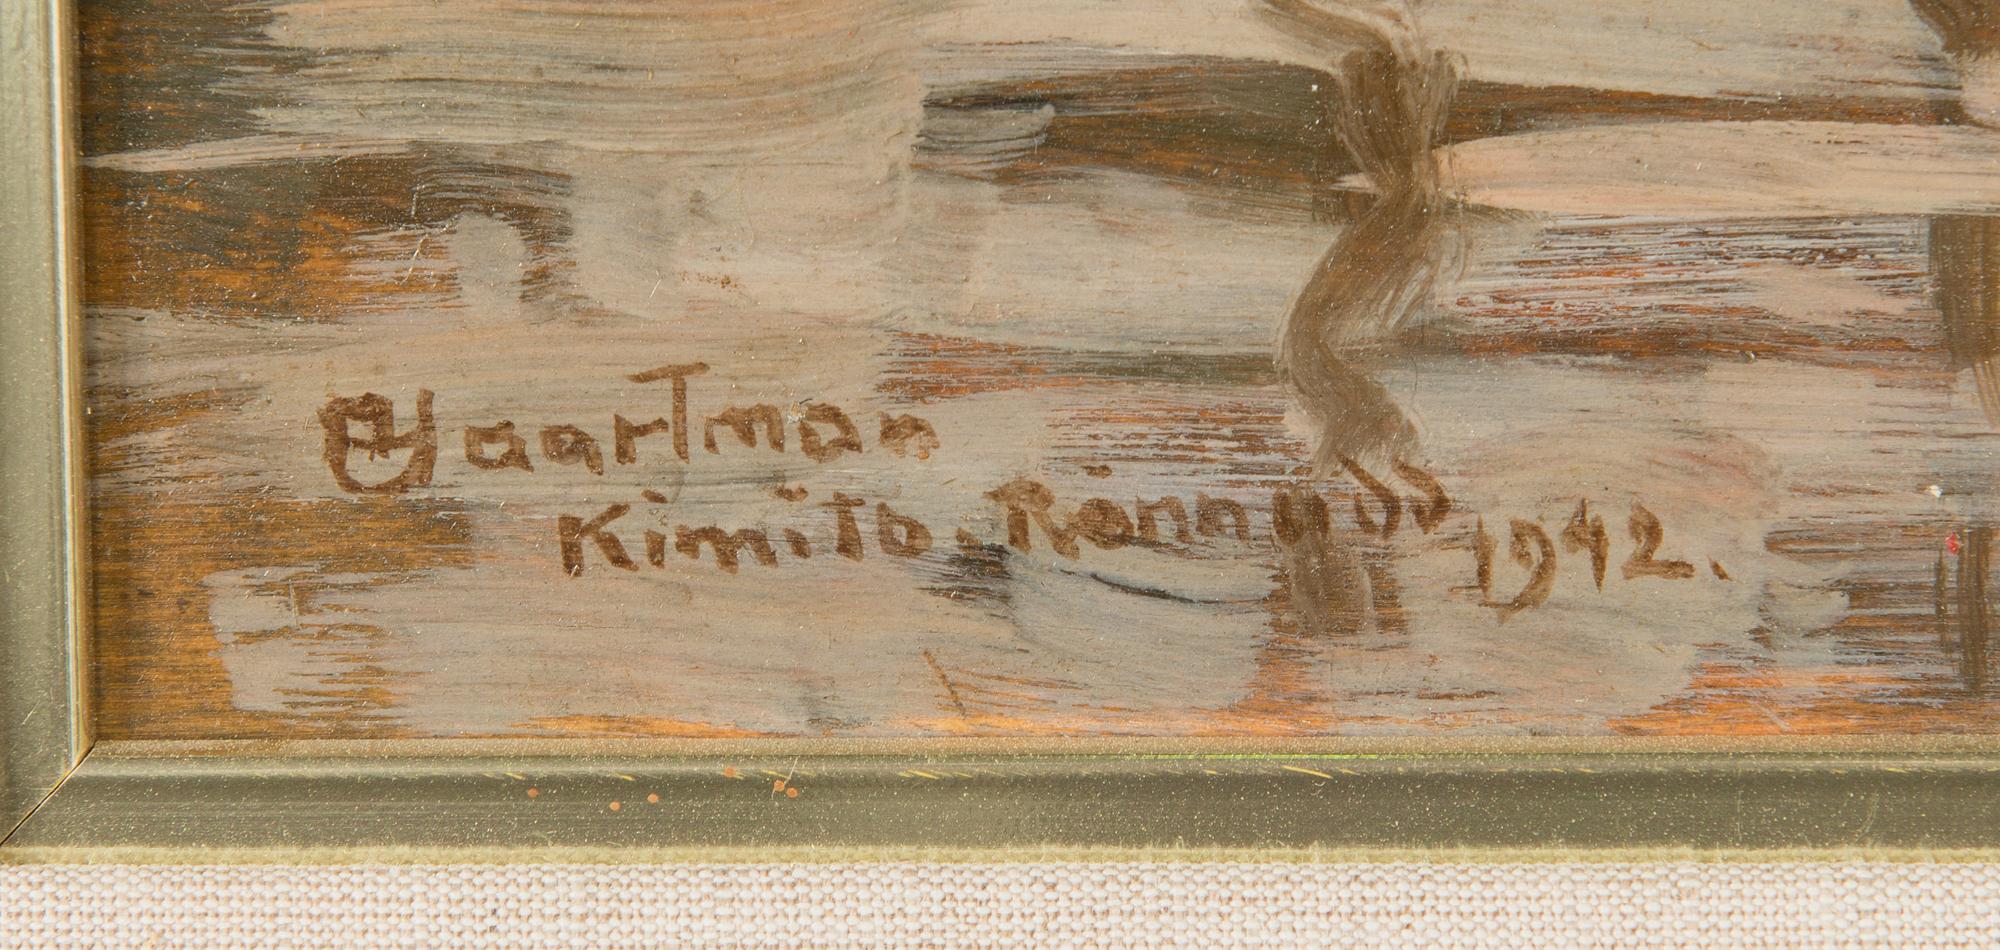 AHaartman
Kimito. Rönnudd 1942.